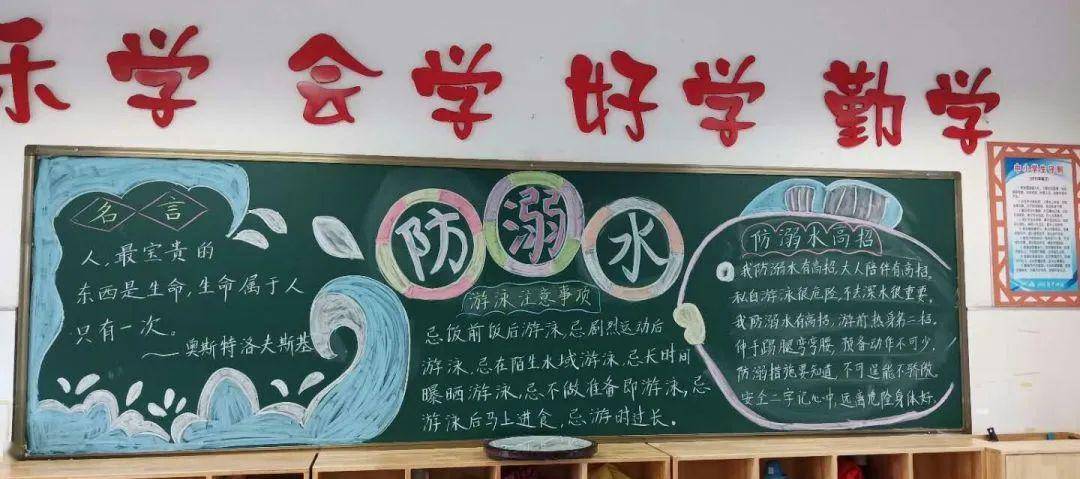 乐学 会学 好学 勤学
名言
人,最宝贵的
东西是生命,生命属于人
只有一次。
——奥斯特洛夫斯基
防溺水
游泳注意事项
忌饭前饭后游泳,忌剧烈运动后
游泳,忌在陌生水域游泳,忌长时间
曝晒游泳,忌不做准备即游泳,忌
游泳后马上进食,忌游时过长。
防溺水高招
我防溺水有高招,大人陪伴有高招。
私自游泳很危险,不去深水很重要。
我防溺水有高招,游前热身第二招。
伸手踢腿弯弯腰,预备动作不可少。
防溺措施要知道,不可逞能不骄傲。
安全二字记心中,远离危险身体好。
中小学生守则